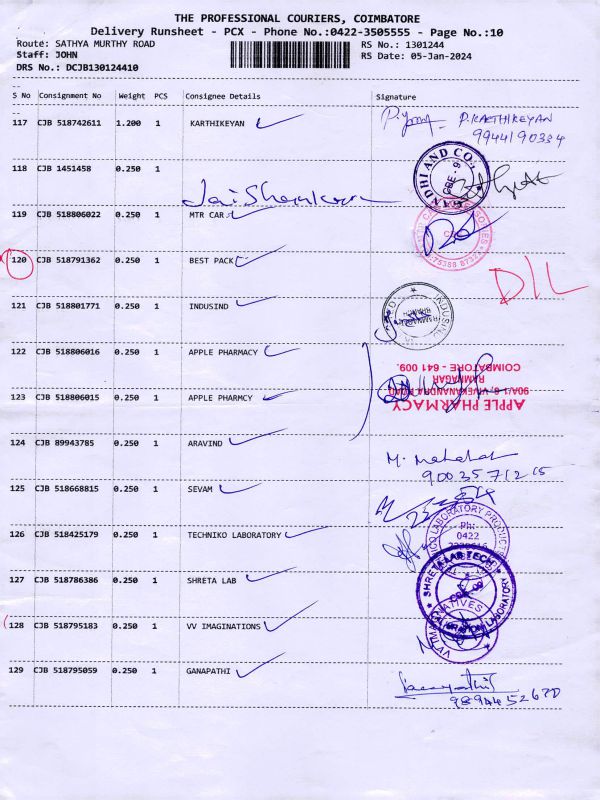 THE PROFESSIONAL COURIERS, COIMBATORE
Delivery Runsheet - PCX - Phone No.:0422-3505555 - Page No.:10
Route: SATHYA MURTHY ROAD RS No.: 1301244
Staff: JOHN RS Date: 05-Jan-2024
DRS No.: DCJB130124410
S No Consignment No Weight PCS Consignee Details Signature
117 CJB 518742611 1.200 1 KARTHIKEYAN P.KARTHIKEYAN
9944190334
118 CJB 1451458 0.250 1
GANDHI AND CO.
CBE - 9
Jai Shankar
119 CJB 518806022 0.250 1 MTR CARS
120 CJB 518791362 0.250 1 BEST PACK
D/L
121 CJB 518801771 0.250 1 INDUSIND
122 CJB 518806016 0.250 1 APPLE PHARMACY
123 CJB 518806015 0.250 1 APPLE PHARMCY
APPLE PHARMACY
RAMNAGAR
COIMBATORE - 641 009.
124 CJB 89943785 0.250 1 ARAVIND
125 CJB 518668815 0.250 1 SEVAM
126 CJB 518425179 0.250 1 TECHNIKO LABORATORY
Ph:
0422
127 CJB 518786386 0.250 1 SHRETA LAB
SHRETA LAB TECH
CALIBRATION LABORATORY
128 CJB 518795183 0.250 1 VV IMAGINATIONS
129 CJB 518795059 0.250 1 GANAPATHI